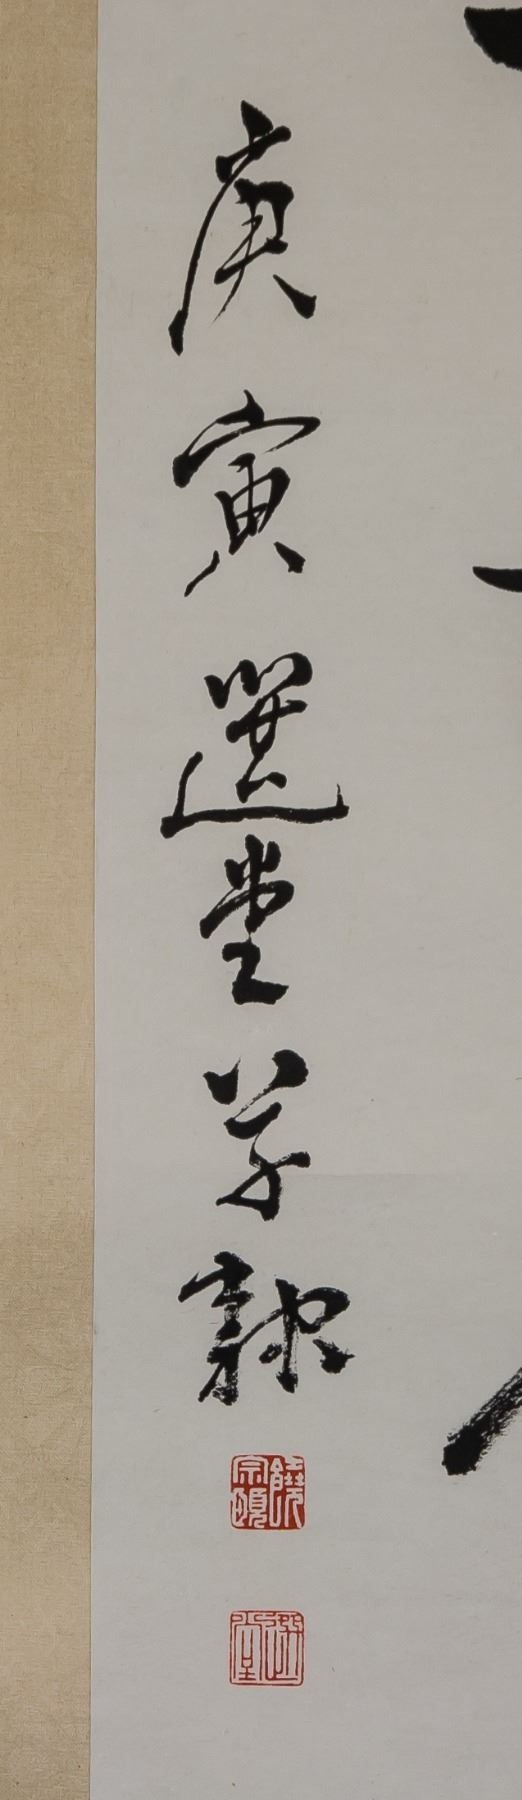 庚寅選堂
饒宗頤
選堂